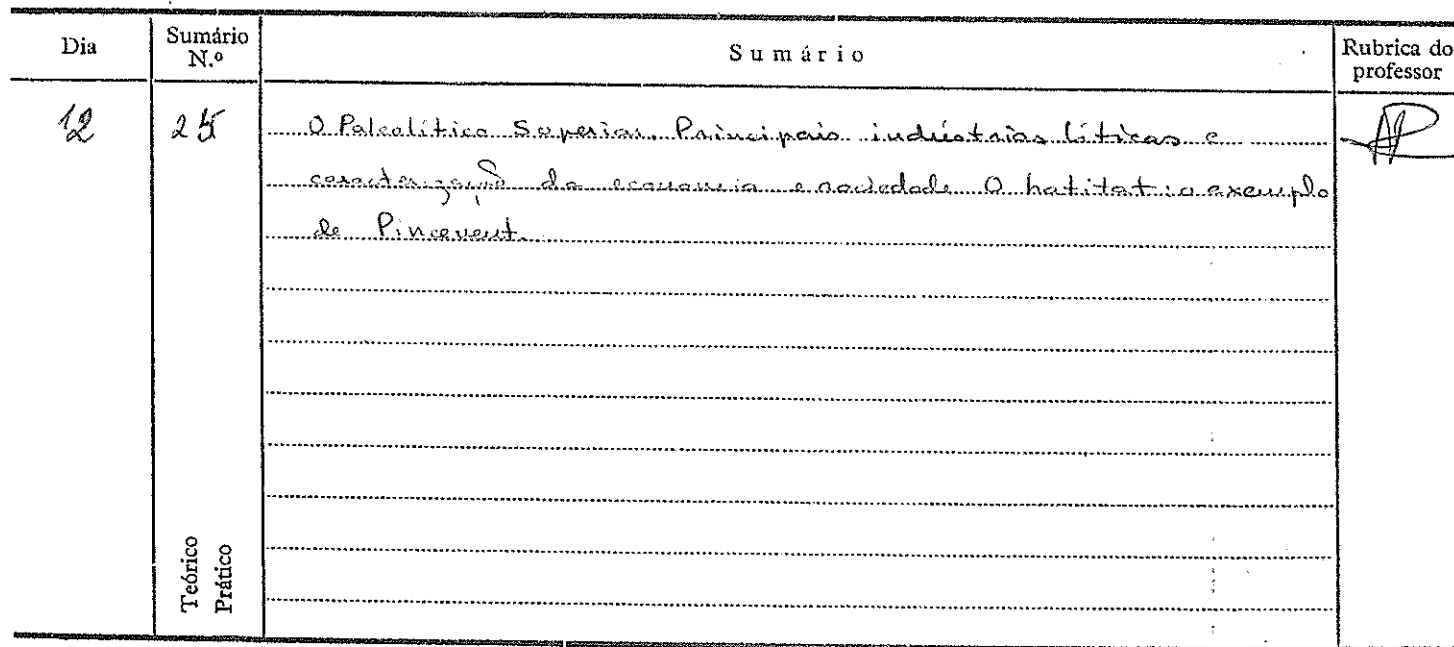 Dia
Sumário N.º
Sumário
Rubrica do professor
12
25
O Paleolítico Superior. Principais indústrias líticas e
caracterização da economia e sociedade. O habitat: o exemplo
de Pincevent.
Teórico
Prático